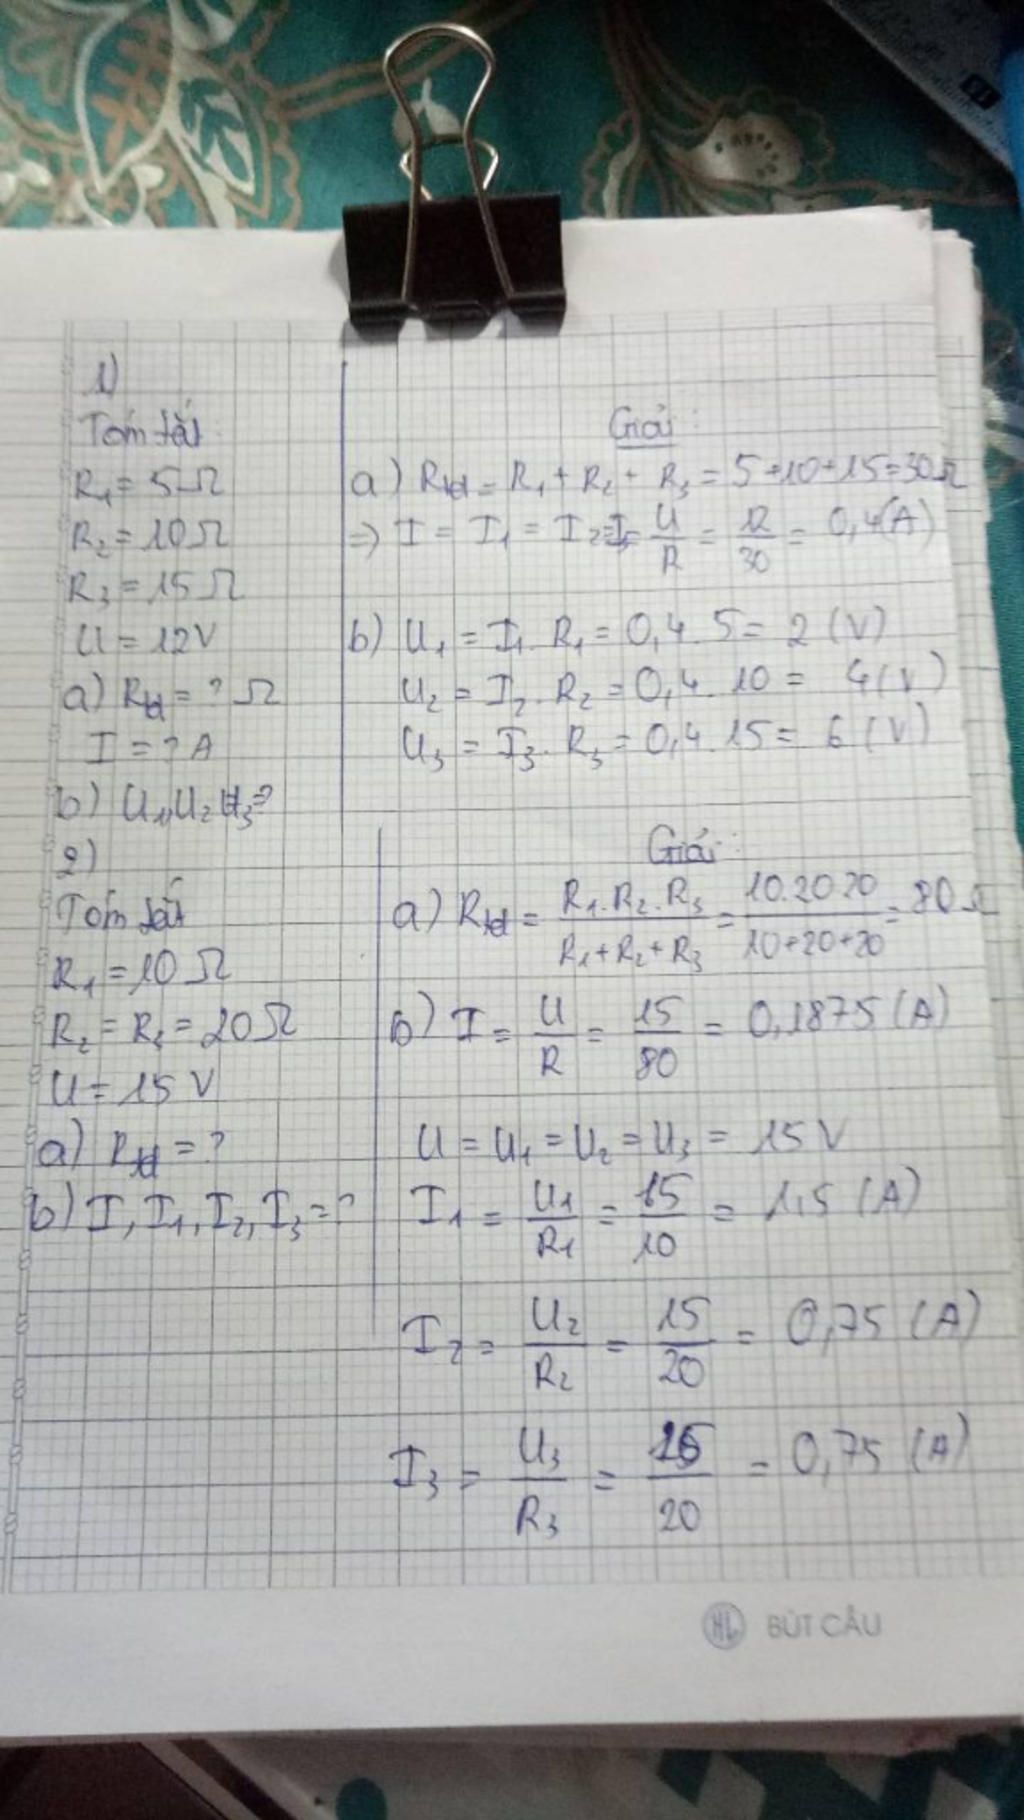 1)
Tóm tắt
R₁ = 5Ω
R₂ = 10Ω
R₃ = 15Ω
U = 12V
a) Rtđ = ? Ω
I = ? A
b) U₁, U₂ U₃ = ?
Giải :
a) Rtđ = R₁ + R₂ + R₃ = 5+10+15=30Ω
=> I = I₁ = I₂=I₃= U/R = 12/30 = 0,4(A)
b) U₁ = I₁. R₁ = 0,4. 5 = 2 (V)
U₂ = I₂. R₂ = 0,4. 10 = 4(V)
U₃ = I₃. R₃ = 0,4. 15 = 6 (V)
2)
Tóm tắt
R₁ = 10 Ω
R₂ = R₃ = 20Ω
U = 15 V
a) Rtđ = ?
b) I, I₁, I₂, I₃ = ?
Giải :
a) Rtđ = R₁.R₂.R₃/R₁+R₂+R₃ = 10.20.20/10+20+20 = 80Ω
b) I = U/R = 15/80 = 0,1875 (A)
U = U₁ = U₂ = U₃ = 15 V
I₁ = U₁/R₁ = 15/10 = 1,5 (A)
I₂ = U₂/R₂ = 15/20 = 0,75 (A)
I₃ = U₃/R₃ = 15/20 = 0,75 (A)
HL BÚT CÂU